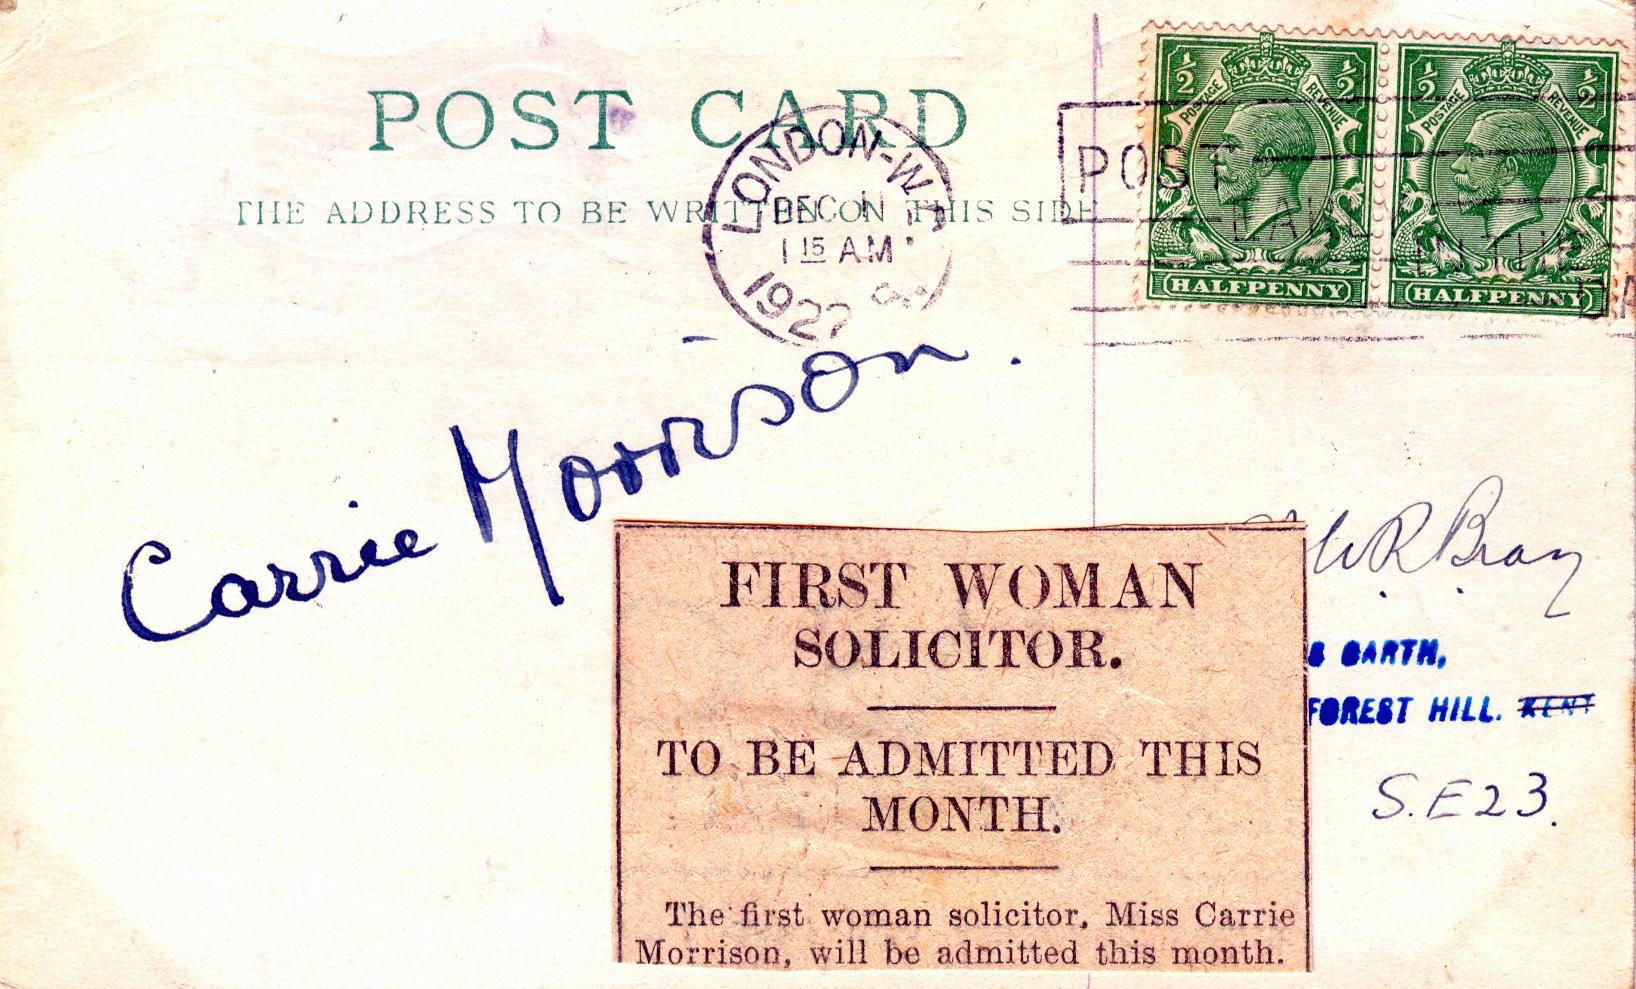 POST CARD
THE ADDRESS TO BE WRITTEN ON THIS SIDE
LONDON-W.1.
DEC 11
1 15 AM
1922
POST
EARLY
IN THE
DA
½ ½
POSTAGE REVENUE
HALFPENNY
½ ½
POSTAGE REVENUE
HALFPENNY
Carrie Morrison.
W R Bray
GARTH,
FOREST HILL. KENT
S.E 23.
FIRST WOMAN
SOLICITOR.
TO BE ADMITTED THIS
MONTH.
The first woman solicitor, Miss Carrie
Morrison, will be admitted this month.